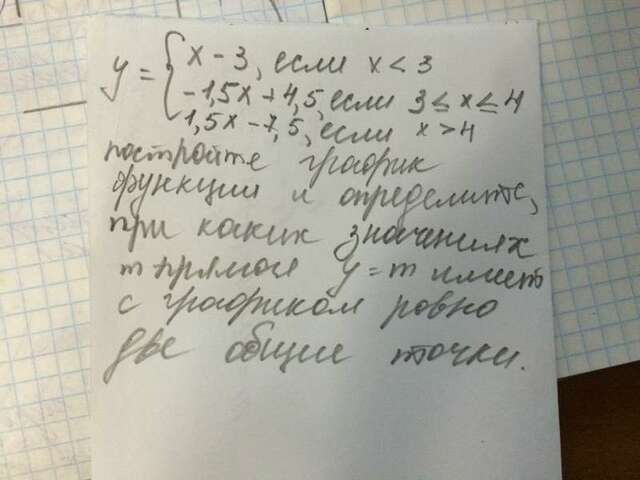 y = { x - 3, если x < 3
-1,5x + 4,5, если 3 ≤ x ≤ 4
1,5x - 7,5, если x > 4
постройте график
функции и определите,
при каких значениях
m прямая y = m имеет
с графиком ровно
две общие точки.